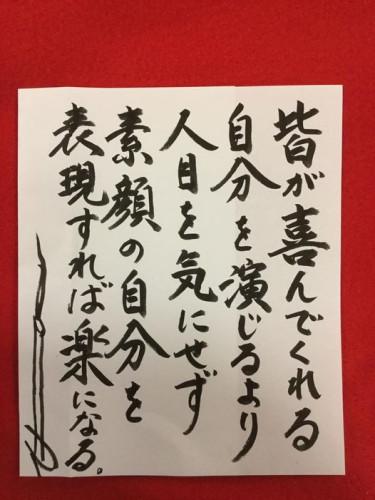 皆が喜んでくれる
自分を演じるより
人目を気にせず
素顔の自分を
表現すれば楽になる。